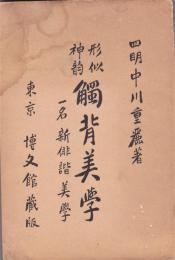 四明中川重麗著
形似
神韵
觸背美學
一名 新俳諧美學
東京 博文館藏版